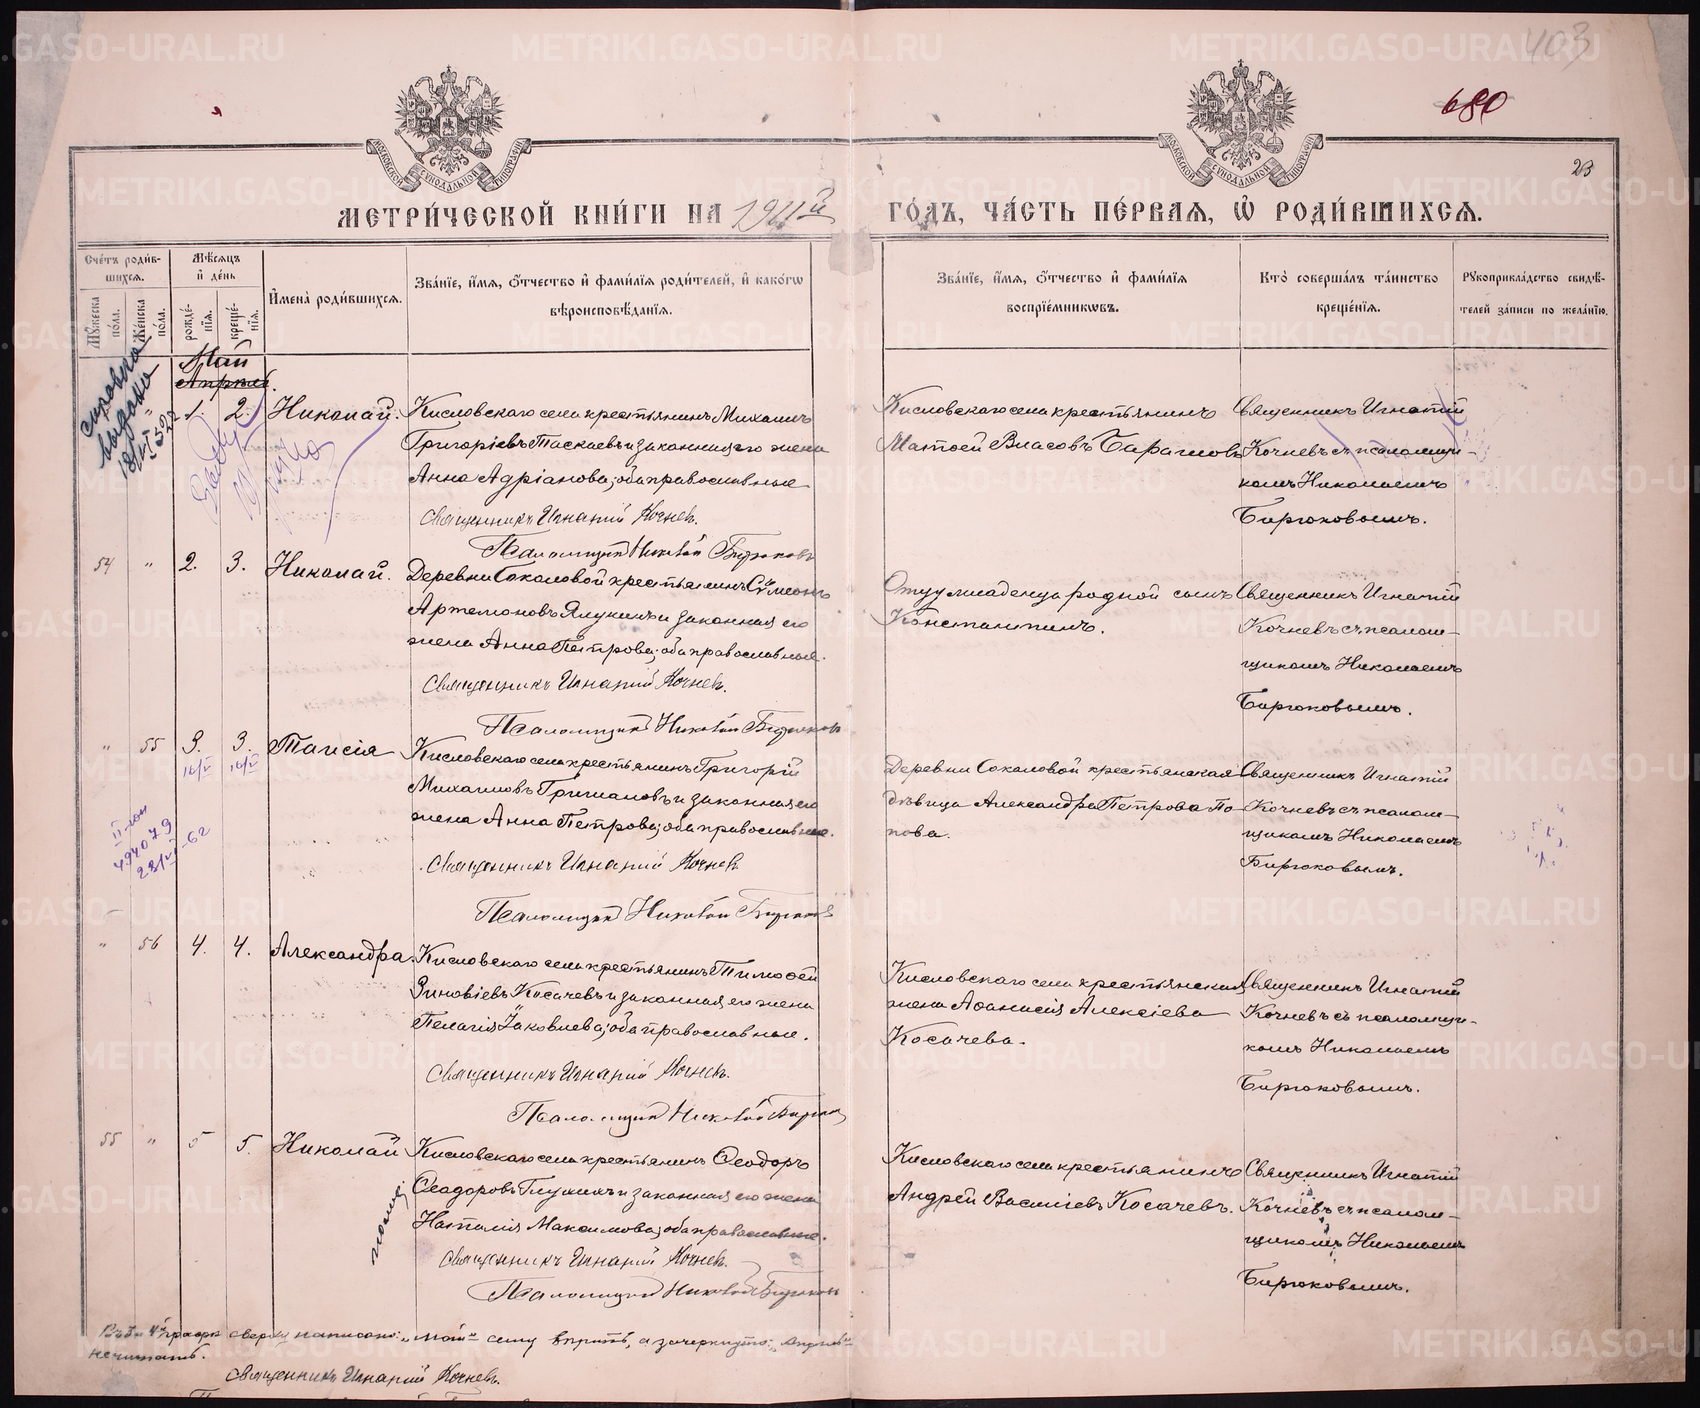 403
680
23
МОСКОВСКОЙ СѴНОДАЛЬНОЙ ТИПОГРАФІИ
МОСКОВСКОЙ СѴНОДАЛЬНОЙ ТИПОГРАФІИ
МЕТРИ́ЧЕСКОЙ КНИ́ГИ НА 1911й ГО́ДЪ, ЧА́СТЬ ПЕ́РВАЯ, Ѡ РОДИ́ВШИХСЯ.
Сче́тъ роди́в-
шихся.
Мꙋ́жеска по́ла.
Же́нска по́ла.
Мѣ́сяцъ
и҆ де́нь
рожде́-
нїя.
креще́-
нїя.
И҆мена̀ роди́вшихся.
Зва́нїе, и҆́мя, ѻ҆́тчество и҆ фами́лїя роди́телей, и҆ како́гѡ
вѣроисповѣ́данїя.
Зва́нїе, и҆́мя, ѻ҆́тчество и҆ фами́лїя
воспрїе́мникѡвъ.
Кто̀ соверша́лъ та́инство
креще́нїя.
Рꙋкоприкла́дство свидѣ́-
телей за́писи по жела́нїю.
Май
Апрель.
справка
выдана
1. 2. Николай.
Кисловскаго села крестьянинъ Михаилъ
Григоріевъ Таскаевъ и законная его жена
Анна Адріанова; оба православные
Священникъ Игнатій Кочневъ.
Псаломщикъ Николай Бирюковъ
Кисловскаго села крестьянинъ
Матѳей Власовъ Барашовъ
Священникъ Игнатій
Кочневъ съ псаломщи-
комъ Николаемъ
Бирюковымъ.
54 " 2. 3. Николай.
Деревни Соколовой крестьянинъ Сѵмеонъ
Артемоновъ Ялунинъ и законная его
жена Анна Петрова; оба православные.
Священникъ Игнатій Кочневъ.
Псаломщикъ Николай Бирюковъ
Отцу младенца родной сынъ
Константинъ.
Священникъ Игнатій
Кочневъ съ псалом-
щикомъ Николаемъ
Бирюковымъ.
" 55 3. 3. Таисія
16/V 16/V
494079
Кисловскаго села крестьянинъ Григорій
Михаиловъ Гришановъ и законная его
жена Анна Петрова; оба православные.
Священникъ Игнатій Кочневъ
Псаломщикъ Николай Бирюковъ
Деревни Соколовой крестьянская
дѣвица Александра Петрова По-
пова.
Священникъ Игнатій
Кочневъ съ псалом-
щикомъ Николаемъ
Бирюковымъ.
" 56 4. 4. Александра.
Кисловскаго села крестьянинъ Тимоѳей
Зиновіевъ Косачевъ и законная его жена
Пелагія Іаковлева; оба православные.
Священникъ Игнатій Кочневъ.
Псаломщикъ Николай Бирюковъ
Кисловскаго села крестьянская
жена Аѳанасія Алексіева
Косачева.
Священникъ Игнатій
Кочневъ съ псаломщи-
комъ Николаемъ
Бирюковымъ.
55 " 5 5. Николай
Кисловскаго села крестьянинъ Ѳеодоръ
Ѳеодоровъ Глухихъ и законная его жена
Наталія Максимова; оба православные.
Священникъ Игнатій Кочневъ.
Псаломщикъ Николай Бирюковъ
Кисловскаго села крестьянинъ
Андрей Василіевъ Косачевъ.
Священникъ Игнатій
Кочневъ съ псалом-
щикомъ Николаемъ
Бирюковымъ.
графѣ сверху написано: "май" сему вѣрить, а зачеркнуто: "апрель"
не читать.
Священникъ Игнатій Кочневъ.
METRIKI.GASO-URAL.RU